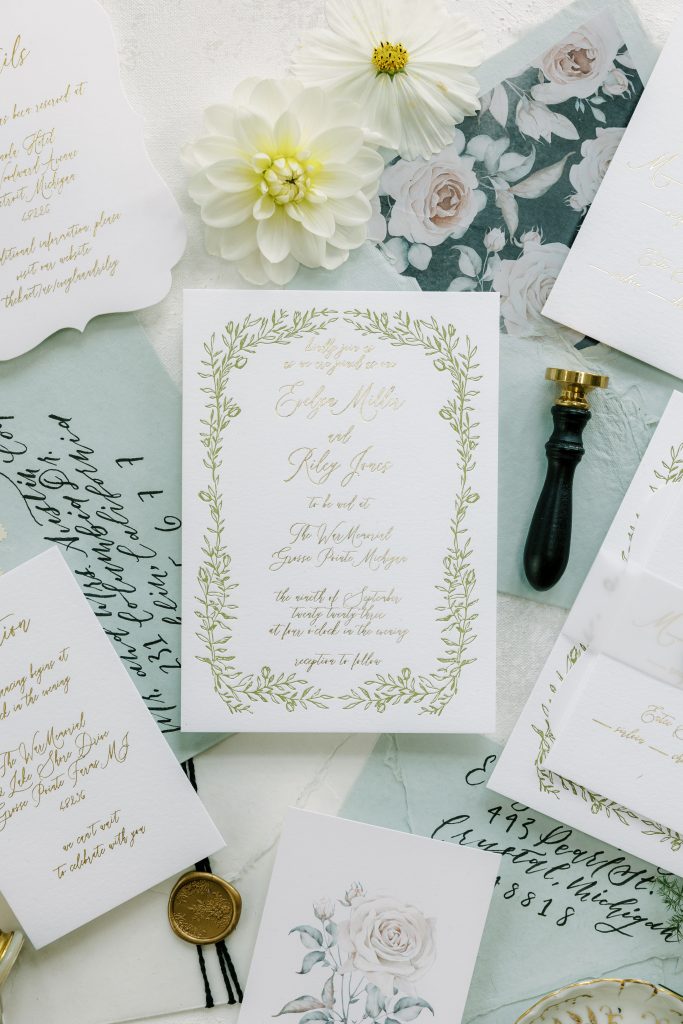 ils
been reserved at
Hotel
Woodward Avenue
Detroit Michigan
48226
additional information please
visit our website
kindly join us
as we are joined as one
Evelyn Miller
and
Riley Jones
to be wed at
The War Memorial
Grosse Pointe, Michigan
the nineth of September
twenty twenty three
at four o'clock in the evening
reception to follow
Mr. and Mrs. Austin
231
tion
dancing begins at
ck in the evening
The War Memorial
Lake Shore Drive
Grosse Pointe Farms MI
48236
we can't wait
to celebrate with you
E
493 Pearl St.
Crystal, Michigan
48818
M